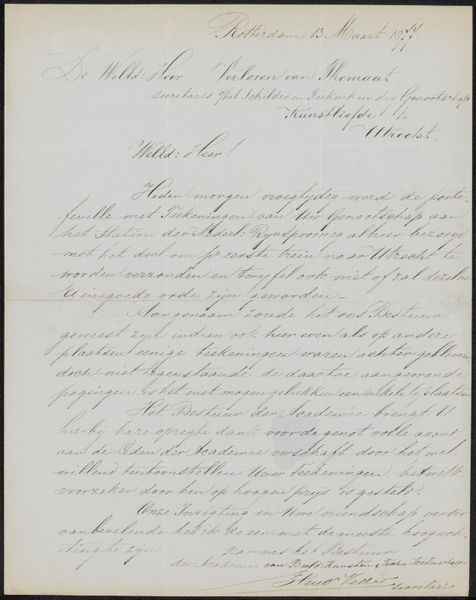 Rotterdam 13 Maart 18
De WelEd: Heer Verloren van Themaat.
secretaris v/het Schilder en Teekenkundig Genootschap
Kunstliefde te
Utrecht.
WelEd: Heer!
Heden morgen vroegtydig werd de porte-
feuille met Teekeningen van Uw Genootschap aan
het Station der Nederl: Rynspoorweg alhier bezorgd
met het doel om pr eerste trein naar Utrecht te
worden verzonden en twyfel ook niet of zal dezelve
U in goede orde zyn geworden.
Aangenaam zoude het ons Bestuur
geweest zyn indien ook hier even als op andere
plaatsen eenige teekeningen waren achter gebleven
doch niet tegenstaande de daartoe aangewend
pogingen is het niet mogen gelukken enkele te plaatsen
Het Bestuur der Academie brengt U
hierby hare opregte dank voor de genot volle avond
aan de Leden der Academie verschaft door het wel
willend tentoonstellen Uwer Teekeningen, hetwelk
voorzeker door hen op hoogen prys is gesteld.
Onze Inrigting in Uwe vriendschap verder
aanbevelende heb ik de eer met de meeste hoogach-
ting te zyn
namens het Bestuur
der Academie van Beeld: Kunsten &
secretaris